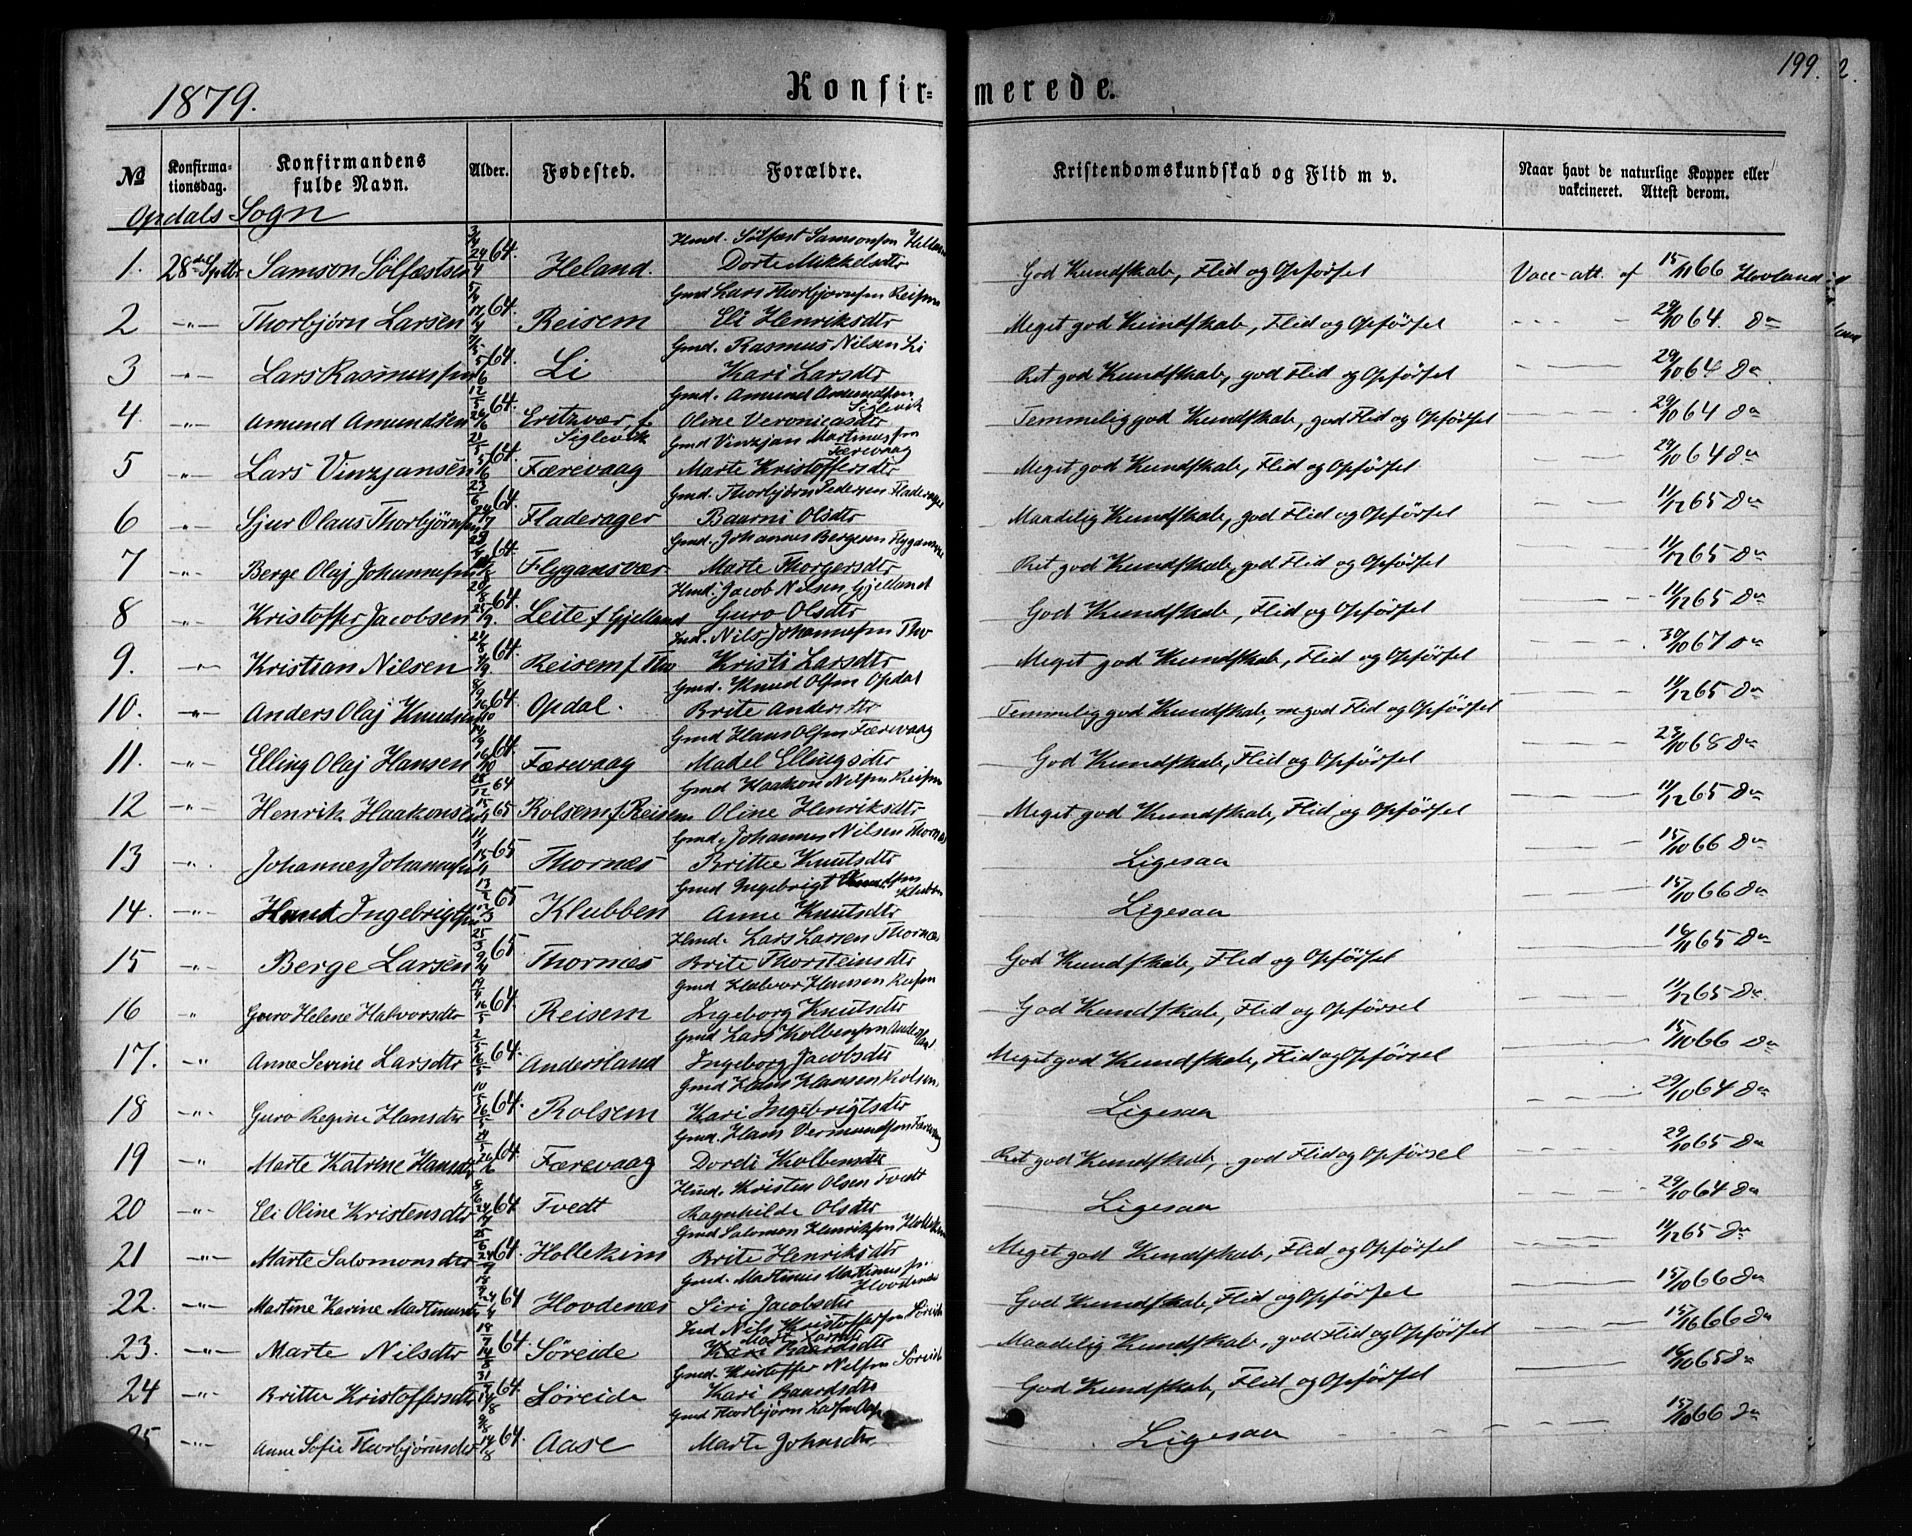 1879.
Konfir=
merede.
199.
2.
No
Konfirma-
tionsdag.
Konfirmandens
fulde Navn.
Alder.
Fødested.
Forældre.
Kristendomskundskab og Flid m v.
Naar havt de naturlige Kopper eller
vakcineret. Attest derom.
Opdals Sogn
Hmd. Sölfæst Samsonsen
1. 28de Septbr Samson Sölfæstsen 64. Heland. Dorte Mikkelsdtr God Kundskab, Flid og Opförsel Vacc-att. af 15/11 66 Hovland
Gmd Lars Thorbjørnsen Reisem
2 -"- Thorbjørn Larsen 64. Reisem Eli Henriksdtr Meget god Kundskab, Flid og Opförsel 29/10 64. Do
Gmd. Rasmus Nilsen Li
3 " Lars Rasmussen 64. Li Kari Larsdtr Ret god Kundskab, god Flid og Opförsel 29/10 64 Do
Gmd. Amund Amundsen
Siglevik
4. " Amund Amundsen 64. Eritzvær, f. Oline Veronicasdtr Temmelig god Kundskab, god Flid og Opförsel 29/10 64 Do
Siglevik
Gmd Vinzjan Martinussen
Færevaag
5 " Lars Vinzjansen 64. Færevaag Marte Kristoffersdtr Meget god Kundskab, Flid og Opförsel 29/10 64 Do
Gmd. Thorbjørn Pedersen Fladerager
6 " Sjur Olaus Thorbjørnsen 64. Fladerager Baurni Olsdtr Maadelig Kundskab, god Flid og Opförsel 11/12 65 Do
Gmd. Johannes Bergesen Flygansvær
7 " Berge Olaj Johannessen 64. Flygansvær Marte Thorgersdtr Ret god Kundskab, god Flid og Opförsel 11/12 65 Do
Hmd. Jacob Nilsen Gjelland
8 " Kristoffer Jacobsen 64. Leite f Gjelland Guro Olsdtr God Kundskab, Flid og Opförsel 11/12 65 Do
Ind. Nils Johannessen Tho
9. -"- Kristian Nilsen 64. Reisem f. Tho Kristi Larsdtr Meget god Kundskab, Flid og Opförsel 30/10 67 Do
Gmd. Knud Olsen Opdal
10. -"- Anders Olaj Knudsen 64. Opdal. Brite Andersdtr Temmelig god Kundskab, m god Flid og Opförsel 11/12 65 Do
Gmd Hans Olsen Færevaag
11. " Elling Olaj Hansen 64. Færevaag Madel Ellingsdtr God Kundskab, Flid og Opförsel 23/10 68 Do
Gmd Haakon Nilsen Reisem
12 " Henrik Haakonsen 65 Rolsem f. Reisem Oline Henriksdtr Meget god Kundskab, Flid og Opförsel 11/12 65 Do
Gmd. Johannes Nilsen Thornæs
13 " Johannes Johannessen 65 Thornæs Brittie Knutsdtr Ligesaa 15/10 66 Do
Gmd Ingebrigt Knudsen
Klubben
14. -"- Knut Ingebrigtsen 65 Klubben Anne Knutsdtr Ligesaa 15/10 66 Do
Hmd. Lars Larsen Thornæs
15 -"- Berge Larsen 65 Thornæs Brite Thorsteinsdtr God Kundskab, Flid og Opförsel 16/11 65 Do
Gmd Halvor Hansen Reisem
16 " Guro Helene Halvorsdtr 64. Reisem Ingeborg Knutsdtr God Kundskab, Flid og Opförsel 11/12 65 Do.
Gmd Lars Kolbensen Anderland
17. -"- Anne Sevine Larsdtr 64. Andersland Ingeborg Jacobsdtr Meget god Kundskab, Flid og Opförsel 15/10 66 Do
Gmd Hans Hansen Rolsem
18 -"- Guro Regine Hansdtr 64. Rolsem Kari Ingebrigtsdtr Ligesaa 29/10 64 Do
Gmd. Hans Vermundsen Færevaag
19 -"- Marte Katrine Hansdtr 64 Færevaag Dordi Kolbensdtr Ret god Kundskab, god Flid og Opförsel 29/10 65 Do
Hmd. Kristen Olsen Tvedt
20 -"- Eli Oline Kristensdtr 64 Tvedt Ragnhilde Olsdtr Ligesaa 29/10 64 Do
Gmd Salomon Henriksen Hollekim
21 -"- Marte Salomonsdtr 64. Hollekim Brite Henriksdtr Meget god Kundskab, Flid og Opförsel 11/12 65 Do
Gmd. Martinus Martinussen
Hovdenæs
22. -"- Martine Karine Martinusdtr 64 Hovdenæs Siri Jacobsdtr God Kundskab, Flid og Opförsel 15/10 66 Do
Ind Nils Kristoffersen Søreide
Marte Larsdtr
23. -"- Marte Nilsdtr 64 Søreide Kari Baardsdtr Maadelig Kundskab, god Flid og Opförsel 66 Do
Gmd. Kristoffer Nilsen Søreide
24 -"- Britte Kristoffersdtr 64. Søreide Kari Baardsdtr God Kundskab, Flid og Opförsel 16/10 65 Do
Gmd Thorbjørn
25 -"- Anne Sofie Thorbjørnsdtr 64. Aase Marte Johnsdtr Ligesaa 15/10 66 Do